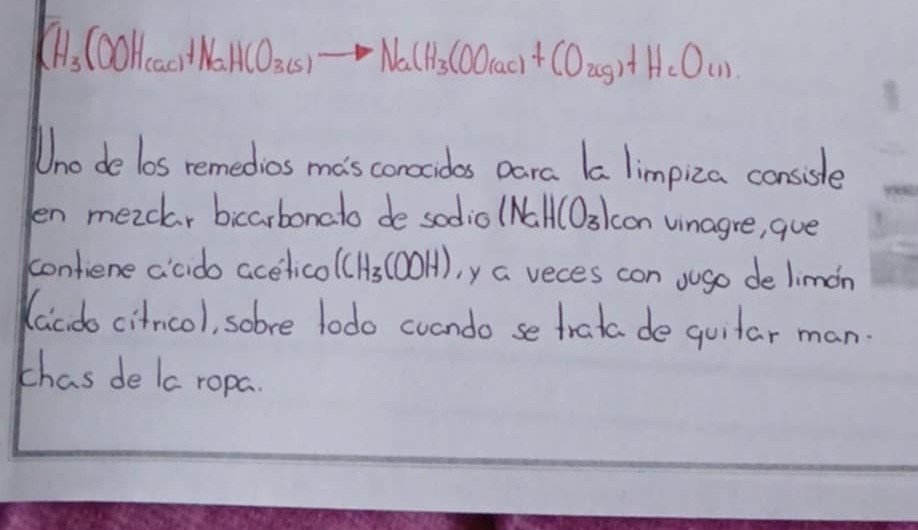 CH₃COOH(ac)+NaHCO₃(s)→NaCH₃COO(ac)+CO₂(g)+H₂O(l).
Uno de los remedios más conocidos para la limpiza consiste
en mezclar bicarbonato de sodio (NaHCO₃) con vinagre, que
contiene ácido acético (CH₃COOH), y a veces con jugo de limón
(ácido cítrico), sobre todo cuando se trata de quitar man-
chas de la ropa.